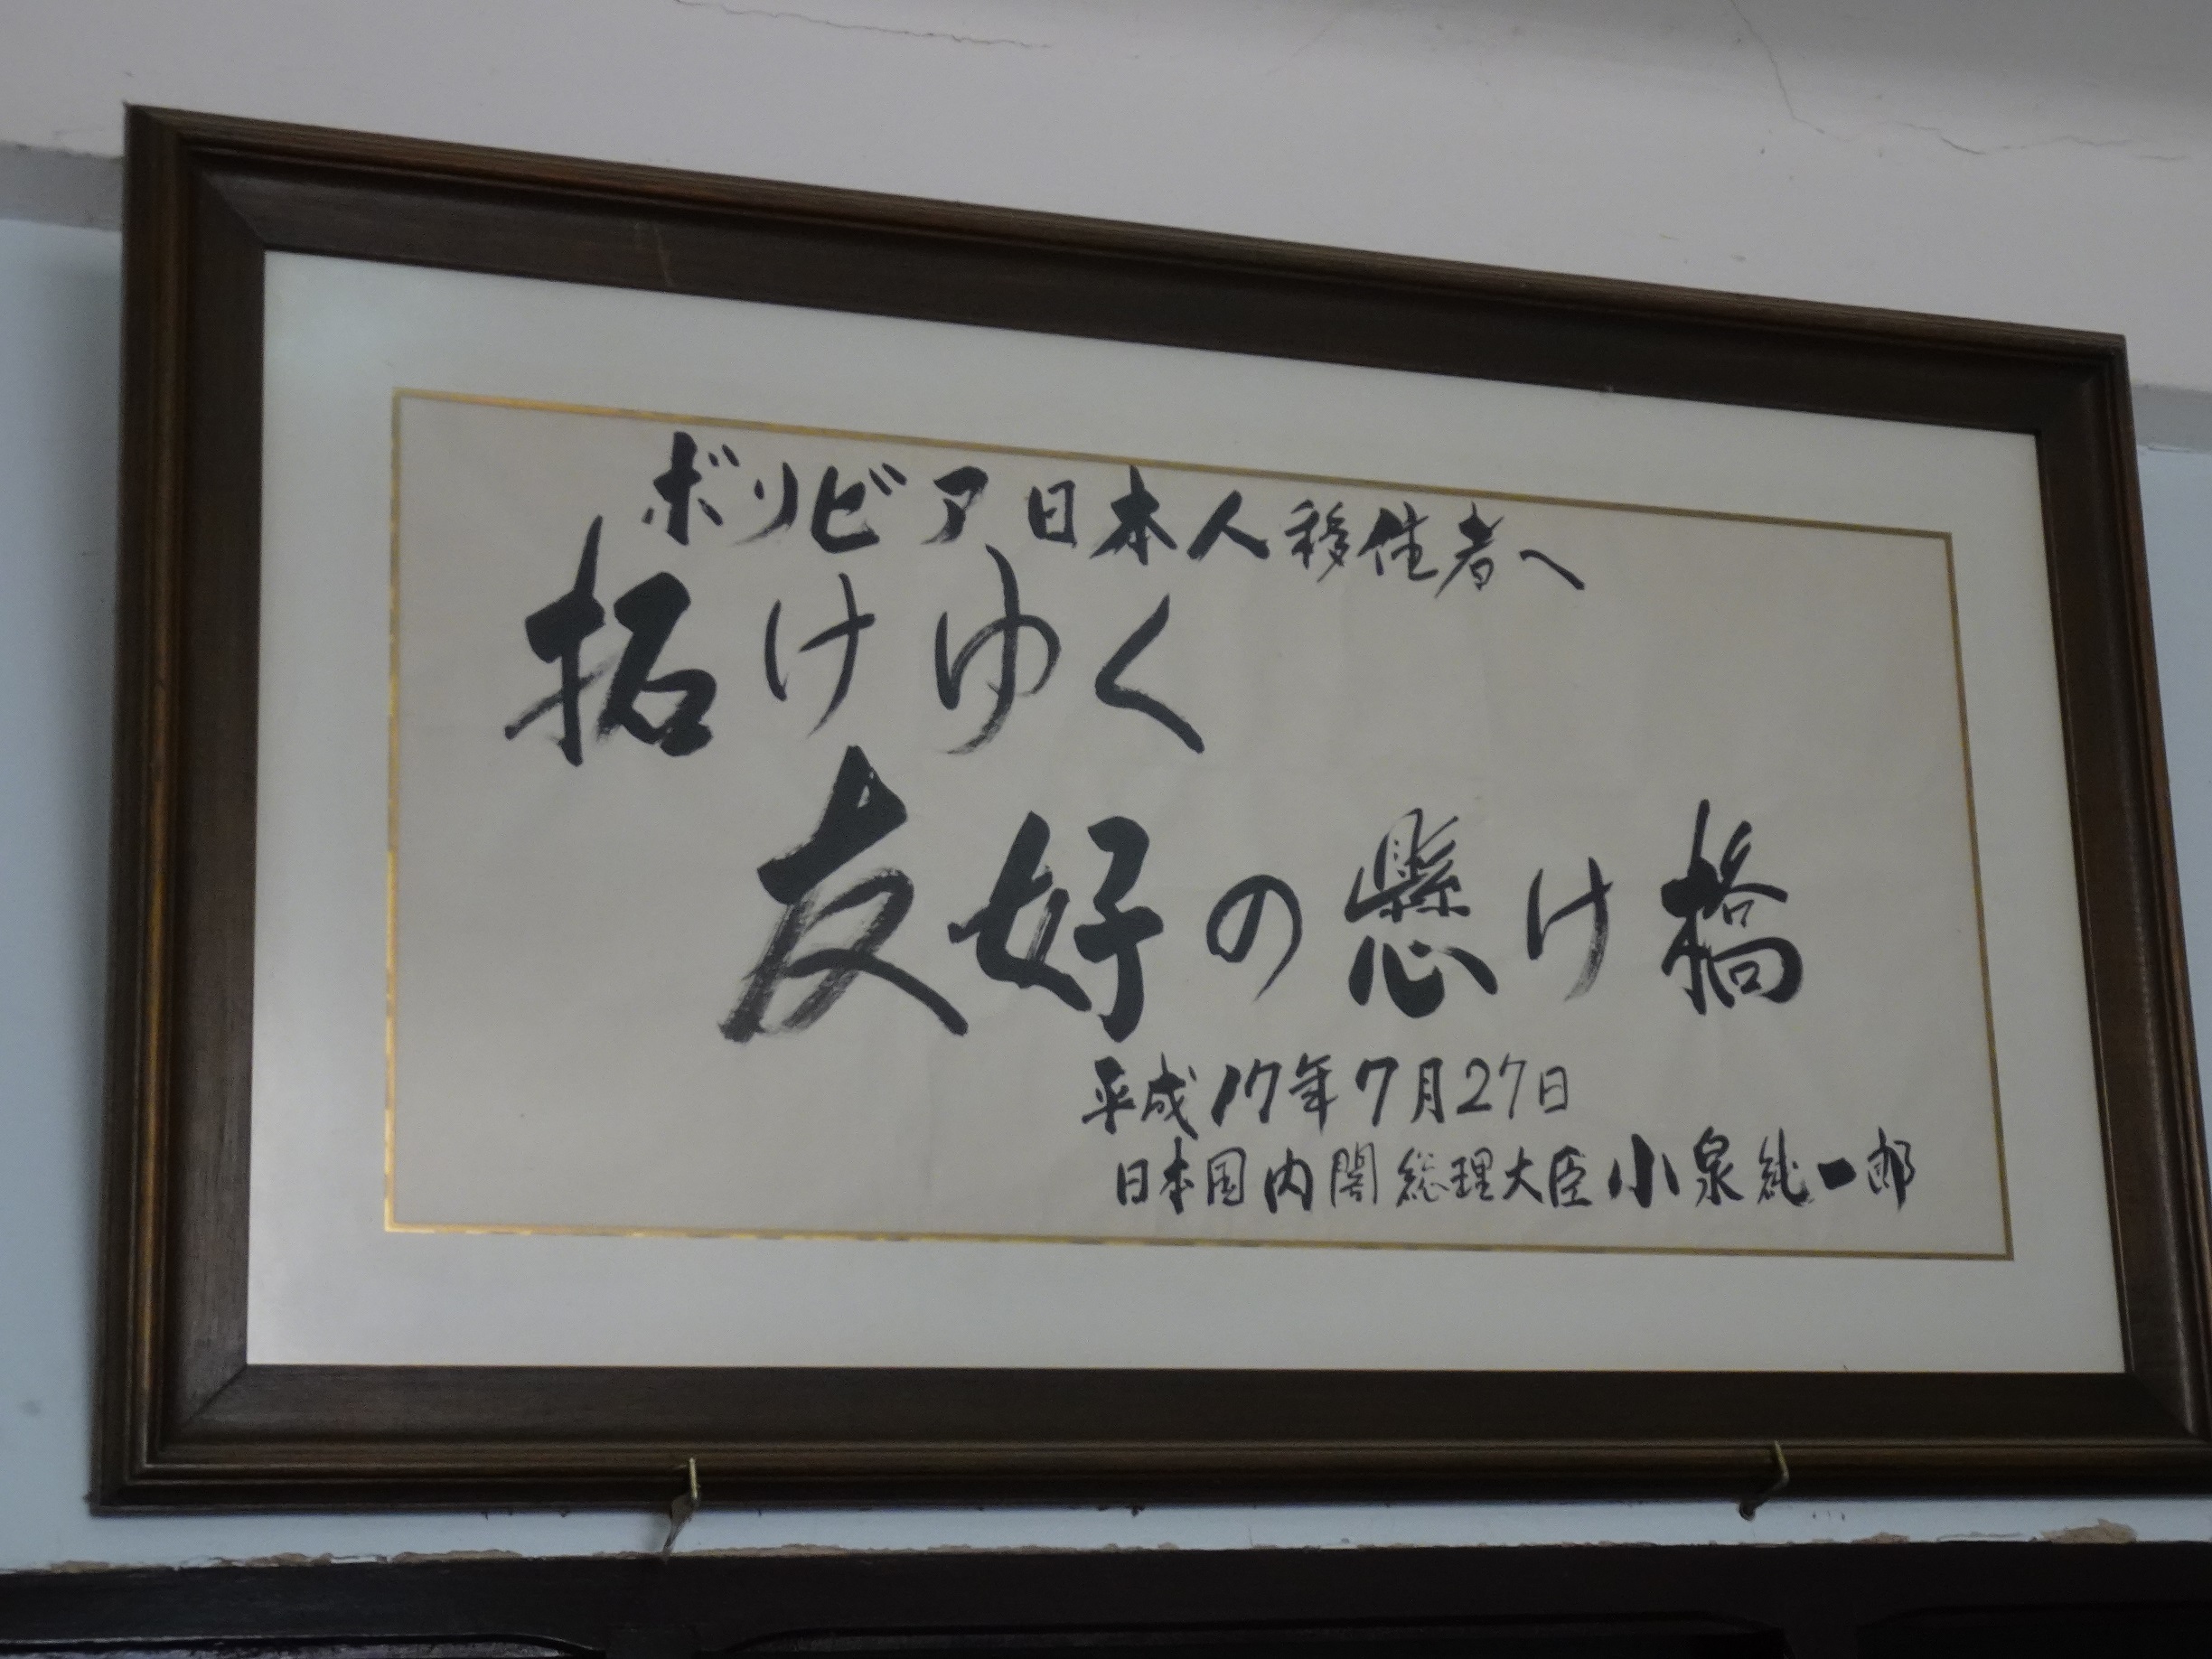 ボリビア日本人移住者へ
拓けゆく
友好の懸け橋
平成17年7月27日
日本国内閣総理大臣小泉純一郎